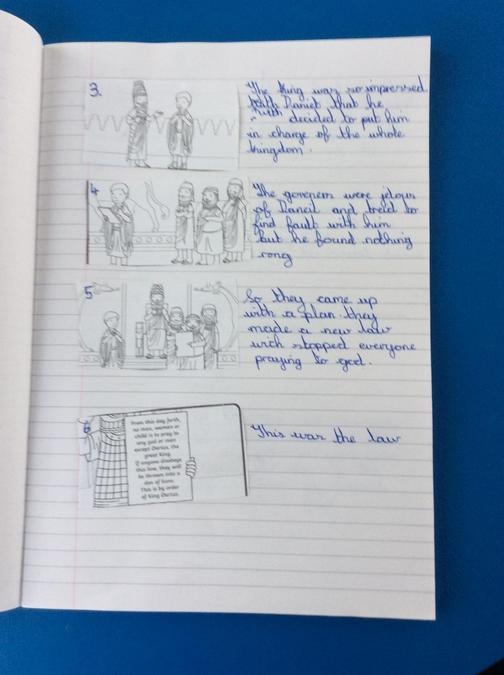 3.
The King was so impressed
with Daniel that he
with decided to put him
in charge of the whole
kingdom.
4
The goveners were jelous
of Daniel and tried to
find fault with him
but he found nothing
rong
5
So they came up
with a plan they
made a new law
wich stopped everyone
praying to god.
6
From this day forth,
no man, woman or
child is to pray to
any god or man
except Darius, the
great King.
If anyone disobeys
this law, they will
be thrown into a
den of lions.
This is by order
of King Darius.
This was the law